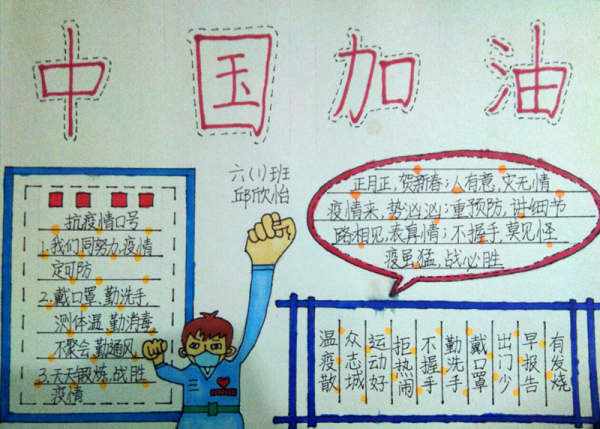 中国加油
六(1)班
邱欣怡
抗疫情口号
1.我们同努力,疫情
定可防
2.戴口罩、勤洗手,
测体温、勤消毒,
不聚会、勤通风。
3.天天锻炼,战胜
疫情
正月正,贺新春;人有意,灾无情
疫情来,势凶凶;重预防,讲细节
路相见,表真情;不握手,莫见怪
疫虽猛,战必胜
有发烧
早报告
出门少
戴口罩
勤洗手
不握手
拒热闹
运动好
众志城
温疫散